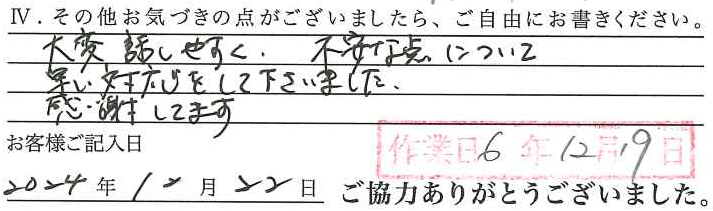 Ⅳ．その他お気づきの点がございましたら、ご自由にお書きください。
大変話しやすく、不安な点について
早い対応をして下さいました。
感謝してます
お客様ご記入日
作業日6年12月19日
2024年12月22日 ご協力ありがとうございました。